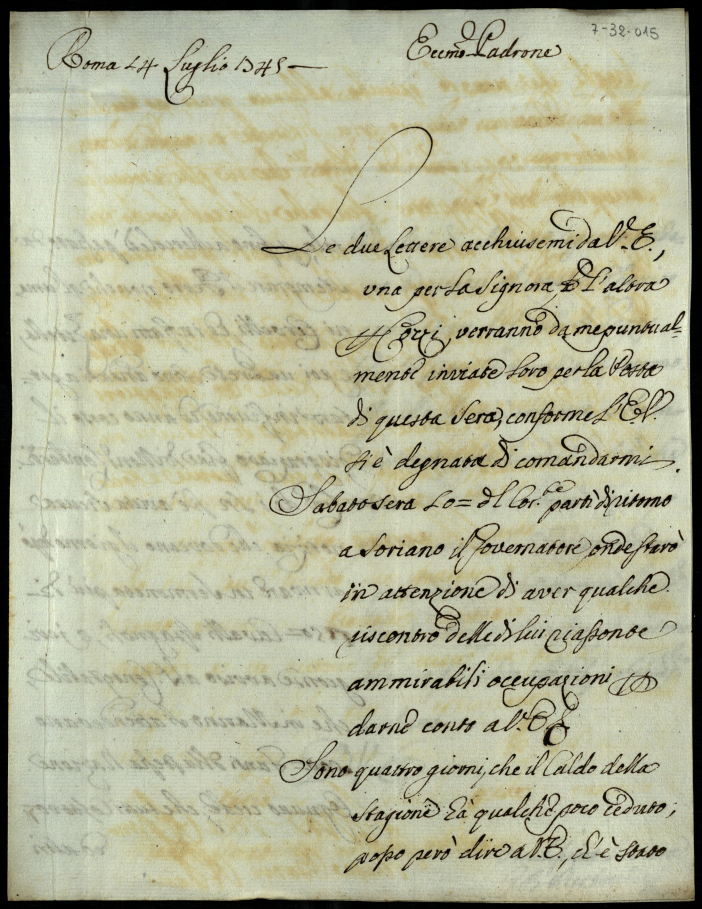 7-32-015
Roma 14 Luglio 1745 —
Eccmo Padrone
Le due Lettere acchiusemi da V. E.,
una per la Signora, e l'altra
verranno da me puntual-
mente inviate loro per la Posta
di questa sera, conforme l'E. V.
si è degnata di comandarmi.
Sabato sera 10= del Corte. partì di ritorno
a Soriano il Governatore, onde starò
in attenzione di aver qualche
riscontro delle di lui riassonte
ammirabili occupazioni
darne conto a V. E.
Sono quattro giorni, che il Caldo della
Stagione hà qualche poco ceduto;
posso però dire a V. E., ch'è stato